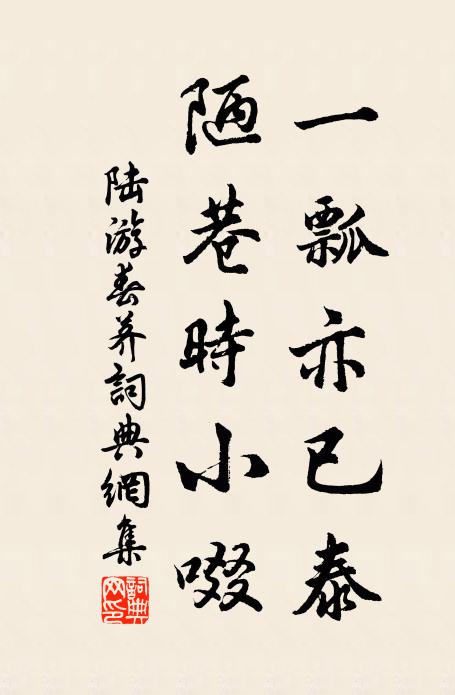 一瓢亦已泰
陋巷時小啜
陸游養疾詞典網集
詞典網印